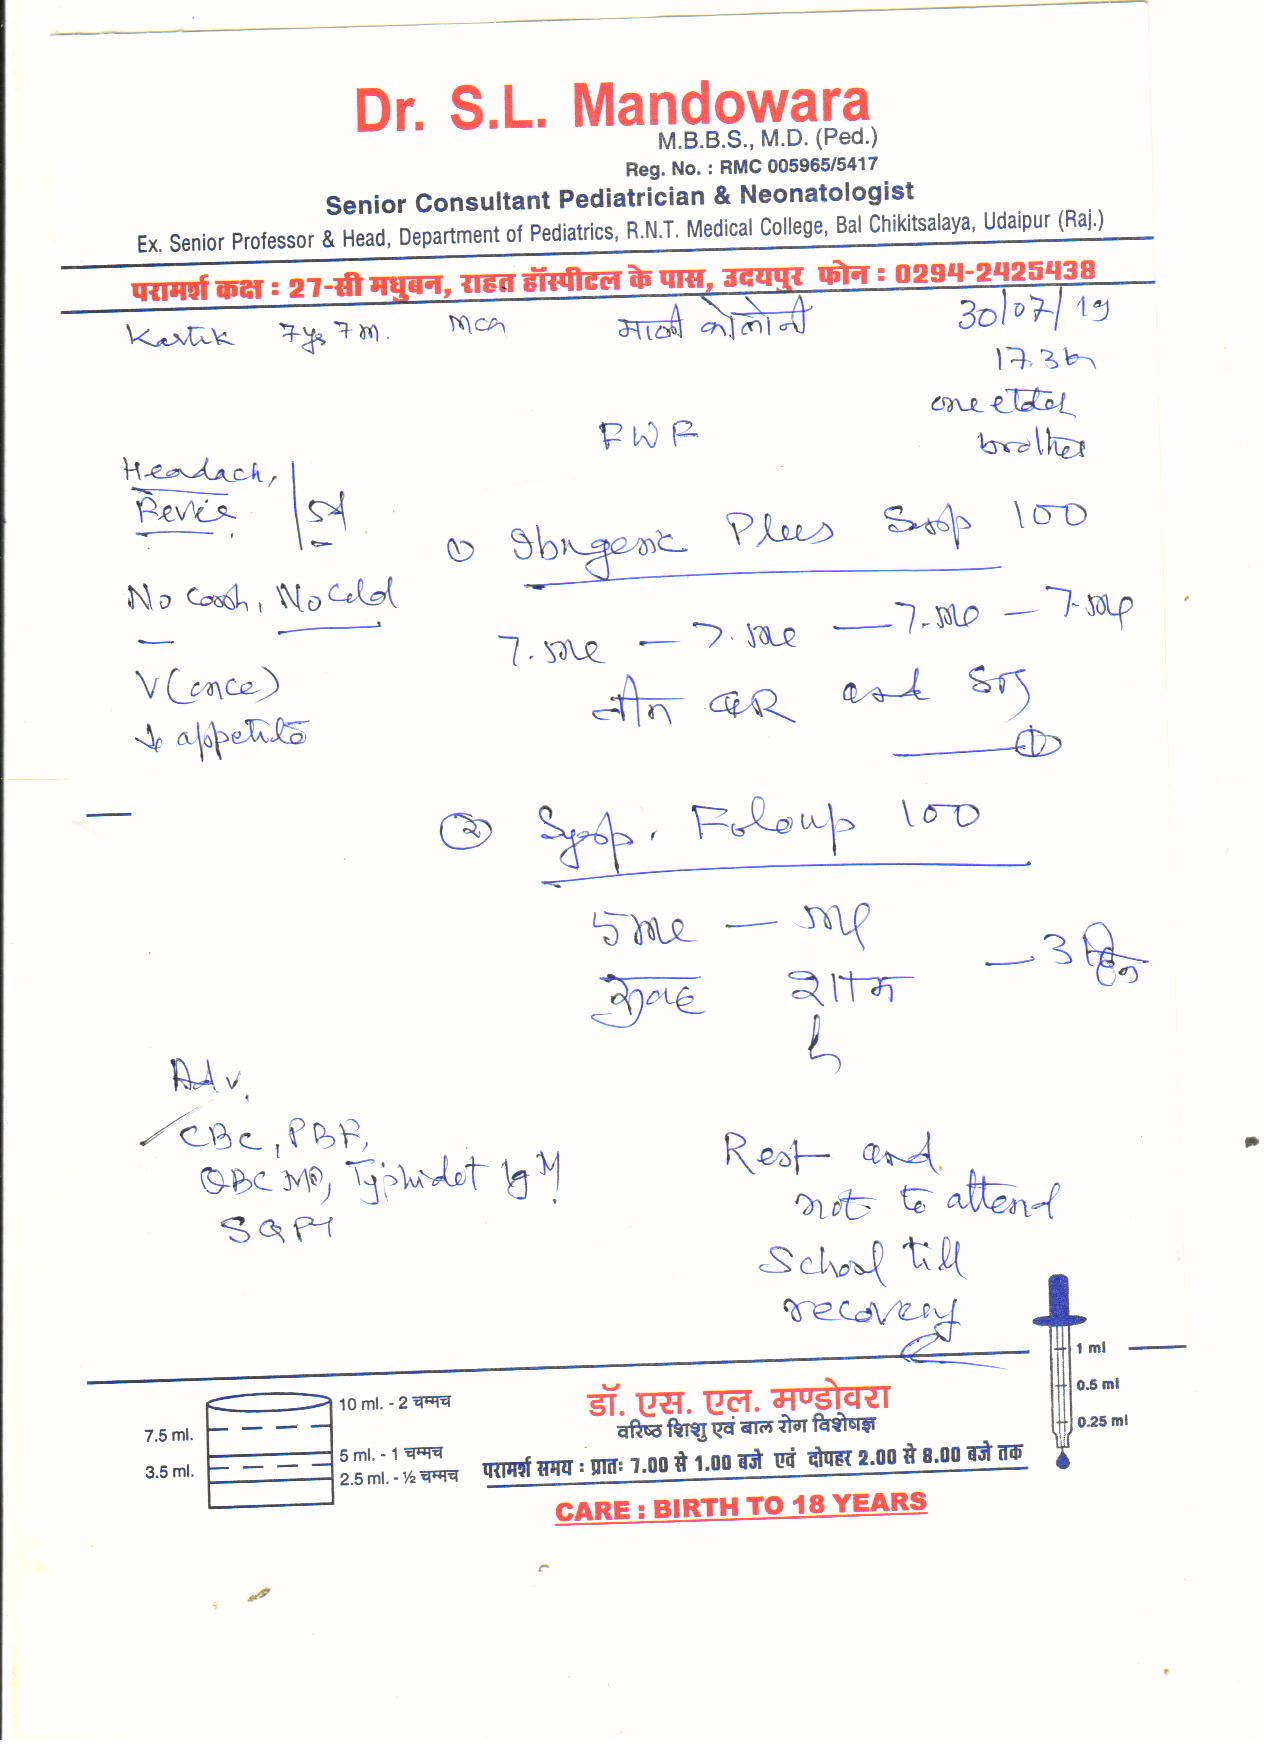 Dr. S.L. Mandowara
M.B.B.S., M.D. (Ped.)
Reg. No. : RMC 005965/5417
Senior Consultant Pediatrician & Neonatologist
Ex. Senior Professor & Head, Department of Pediatrics, R.N.T. Medical College, Bal Chikitsalaya, Udaipur (Raj.)
परामर्श कक्ष : 27-सी मधुबन, राहत हॉस्पीटल के पास, उदयपुर फोन : 0294-2425438
Kartik 7ys 7m. mcn कोलोनी 30/07/19
17.3
one elder
brother
FWF
Headach,
Fever. 5d
No Cough, No Cold
V (once)
↓ appetite
① Ibugesic Plus Syrup 100
7.ml — 7.ml — 7.ml — 7.ml
तीन and SOS
①
② Syrup. 100
5ml — ml
सुबह शाम — 3 दिन
Adv.
CBC, PBF,
QBC MP, Typhidot IgM
SGPT
Rest and
not to attend
School till
recovery
1 ml
0.5 ml
0.25 ml
10 ml. - 2 चम्मच
7.5 ml.
5 ml. - 1 चम्मच
3.5 ml.
2.5 ml. - ½ चम्मच
डॉ. एस. एल. मण्डोवरा
वरिष्ठ शिशु एवं बाल रोग विशेषज्ञ
परामर्श समय : प्रातः 7.00 से 1.00 बजे एवं दोपहर 2.00 से 8.00 बजे तक
CARE : BIRTH TO 18 YEARS